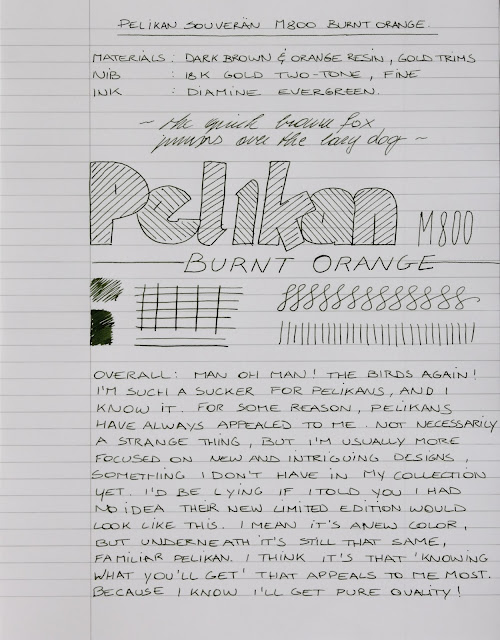 PELIKAN SOUVERÄN M800 BURNT ORANGE.
MATERIALS : DARK BROWN & ORANGE RESIN, GOLD TRIMS
NIB : 18K GOLD TWO-TONE, FINE
INK : DIAMINE EVERGREEN.
~ the quick brown fox
jumps over the lazy dog ~
Pelikan M800
BURNT ORANGE
OVERALL: MAN OH MAN! THE BIRDS AGAIN!
I'M SUCH A SUCKER FOR PELIKANS, AND I
KNOW IT. FOR SOME REASON, PELIKANS
HAVE ALWAYS APPEALED TO ME. NOT NECESSARILY
A STRANGE THING, BUT I'M USUALLY MORE
FOCUSED ON NEW AND INTRIGUING DESIGNS,
SOMETHING I DON'T HAVE IN MY COLLECTION
YET. I'D BE LYING IF I TOLD YOU I HAD
NO IDEA THEIR NEW LIMITED EDITION WOULD
LOOK LIKE THIS. I MEAN IT'S A NEW COLOR,
BUT UNDERNEATH IT'S STILL THAT SAME,
FAMILIAR PELIKAN. I THINK IT'S THAT 'KNOWING
WHAT YOU'LL GET' THAT APPEALS TO ME MOST.
BECAUSE I KNOW I'LL GET PURE QUALITY!